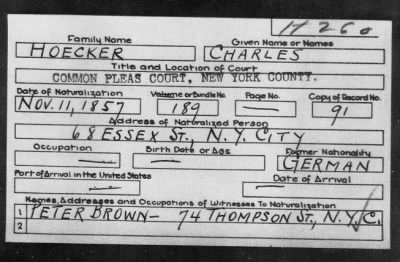 H 260
Family Name Given Name or Names
HOECKER CHARLES
Title and Location of Court
COMMON PLEAS COURT, NEW YORK COUNTY.
Date of Naturalization Volume or Bundle No. Page No. Copy of Record No.
NOV. 11, 1857 189 — 91
Address of Naturalized Person
68 ESSEX ST., N.Y. CITY
Occupation Birth Date or Age Former Nationality
— — GERMAN
Port of Arrival in the United States Date of Arrival
— —
Names, Addresses and Occupations of Witnesses To Naturalization
1 PETER BROWN— 74 THOMPSON ST., N.Y.C.
2